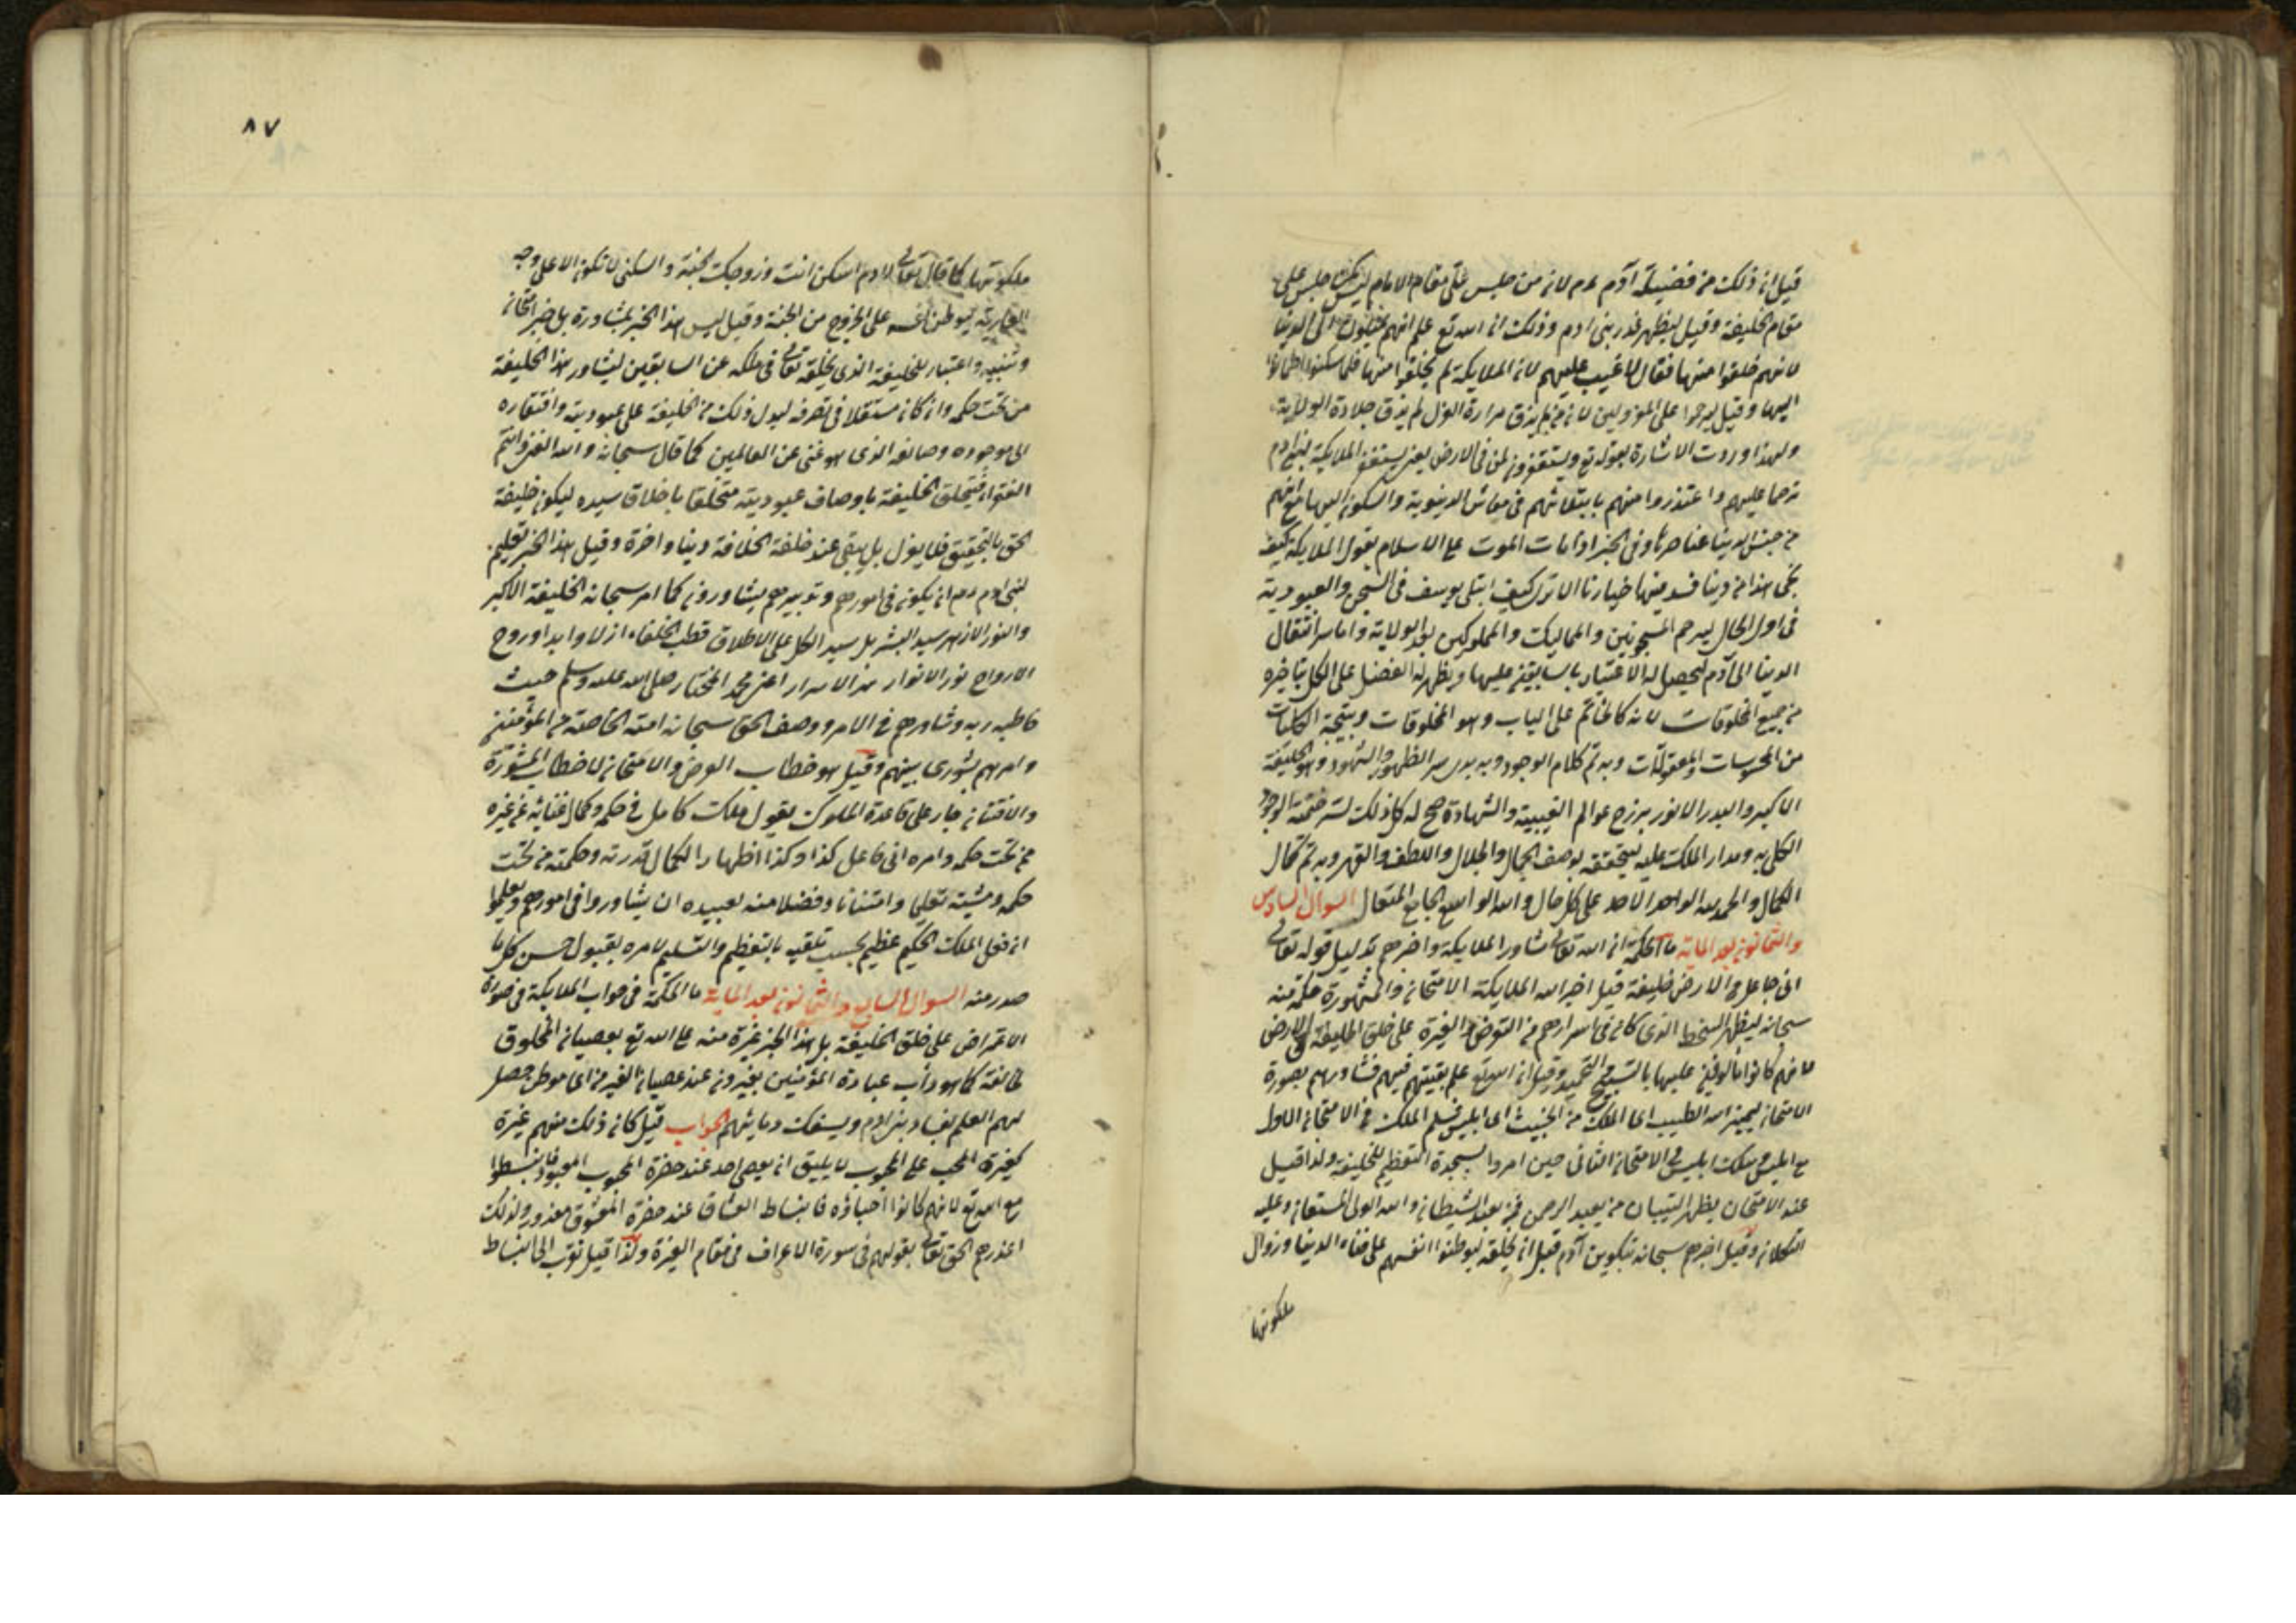 قيل ان ذلك من فضيلة آدم عم لانه من جلس على مقام الامام ليس كمن جلس على
مقام الخليفة وقيل ليظهر قدر بنى ادم وذلك ان الله تع علم انهم يميلون الى الدنيا
لانهم خلقوا منها فقال لا عيب عليهم لان الملايكة لم يخلقوا منها فلما سكنوا اطمأنوا
اليها وقيل ليرحموا على المعزولين لان من لم يذق مرارة العزل لم يذق حلاوة الولاية
ولهذا وردت الاشارة بقوله تع ويستغفرون لمن فى الارض يعنى يستغفر الملايكة لبنى ادم
ترحما عليهم واعتذروا منهم بابتلائهم فى معاش الدنيوية والسكون اليها مع انهم
من جنس الدنيا عناصرها وفى الخبر اذا مات الموت على الاسلام يقول الملايكة كيف
نجى هذا من دنيا فسد منها خيارنا الا ترى كيف ابتلى يوسف فى السجن والعبودية
فى اول الحال ليرحم المسجونين والمماليك والمملوكين بعد الولاية واما سر انتقال
الدنيا الى آدم ليحصل له الاعتبار بالسابقين عليها ويظهر له الفضل على الكل بتأخيره
من جميع المخلوقات لانه كالخاتم على الباب وهو المخلوقات ونتيجة الكليات
من المحسوسات والمعقولات وبه تم كلام الوجود وبه بدى سر الظهور والشهود وهو الخليفة
الاكبر والبدر الانور برزخ عوالم الغيبية والشهادة صح له كل ذلك لسر ختمية الوجود
الكلى به ومدار الملك عليه لتحققه بوصف الجمال والجلال واللطف والقهر وبه تم كمال
الكمال والحمد لله الواحد الاحد على كل حال والله الواسع الجامع المتعال السوال السادس
والثمانون بعد الماية ما الحكمة ان الله تعالى شاور الملايكة واخبرهم بدليل قوله تعالى
انى جاعل فى الارض خليفة قيل اخبر الله الملايكة الامتحان والمشورة حكمة منه
سبحانه ليظهر السخط الذى كان فى اسرارهم من التعرض والغيرة على خلق الخليفة فى الارض
لانهم كانوا مألوفين عليها بالتسبيح والتحميد وقيل ان الله تع علم بقيتهم فيهم فشاورهم بصورة
الامتحان ليميز الله الطيب اى الملك من الخبيث اى ابليس فسلم الملك فى الامتحان الاول
مع ابليس وهلك ابليس فى الامتحان الثانى حين امروا بسجدة التعظيم للخليفة ولذا قيل
عند الامتحان يظهر التبيان من يعبد الرحمن ممن يعبد الشيطان والله المولى المستعان وعليه
التكلان وقيل اخبرهم سبحانه بتكوين آدم قبل ان يخلقه ليوطنوا انفسهم على فناء الدنيا وزوال
ملكوتها
٨٧
ملكوتها كما قال تعالى لادم اسكن انت وزوجك الجنة والسكنى لا تكون الا على وجه
العارية ليوطن نفسه على الخروج من الجنة وقيل ليس هذا الخبر بمشاورة بل خبر امتحان
وتنبيه واعتبار للخليفة الذى يخلقه تعالى فى ملكه عن السابقين ليشاور هذا الخليفة
من تحت حكمه وان كان مستقلا فى تصرفه ليدل ذلك من الخليفة على عبوديته وافتقاره
الى موجوده وصانعه الذى هو غنى عن العالمين كما قال سبحانه والله الغنى وانتم
الفقراء فيتحلق الخليفة باوصاف عبوديته متخلقا باخلاق سيده ليكون خليفة
الحق بالتحقيق فلا يعزل بل يبقى عند خلعة الخلافة دنيا واخرة وقيل هذا الخبر تعليم
لبنى ادم عم ان يكون فى امورهم وتدبيرهم يشاورون كما امر سبحانه الخليفة الاكبر
والنور الازهر سيد البشر بل سيد الكل على الاطلاق قطب الخلفاء ازلا وابدا وروح
الارواح نور الانوار سر الاسرار اعنى محمد المختار صلى الله عليه وسلم حيث
خاطبه ربه وشاورهم فى الامر ووصف الحق سبحانه امته الخاصة من المؤمنين
وامرهم شورى بينهم وقيل هو خطاب العرض والامتحان لا خطاب المشورة
والافتتان جار على قاعدة الملوك يقول ملك كامل فى حكمه وكمال غنائه عن غيره
ممن تحت حكمه وامره انى فاعل كذا وكذا اظهارا لكمال قدرته وحكمته من تحت
حكمه ومشيته تعليما وامتنانا وفضلا منه لعبيده ان يشاوروا فى امورهم وتعليموا
ان فعل الملك الحكيم عظيم يجب تلقيه بالتعظيم والتسليم لامره بقبول حسن كل ما
صدر منه السوال السابع والثمانون بعد الماية ما الحكمة فى جواب الملايكة فى صورة
الاعتراض على خلق الخليفة بل هذا الخبر غيرة منه على الله تع بعصيان المخلوق
لخالقه كما هو دأب عبادة المؤمنين يغيرون عند عصيان الغير من اى موطن حصل
لهم العلم بفساد بنى ادم ويسفك دمائهم الجواب قيل كان ذلك منهم غيرة
كغيرة المحب على المحبوب لا يليق ان يعصى احد عند حضرة المحبوب المعبود فانبسطوا
مع الله تع لانهم كانوا احباؤه فانبساط العشاق عند حضرة المعشوق معذور ولذلك
اعذرهم الحق تعالى بقولهم فى سورة الاعراف فى مقام العزة ولذا قيل نوب الى انبساط